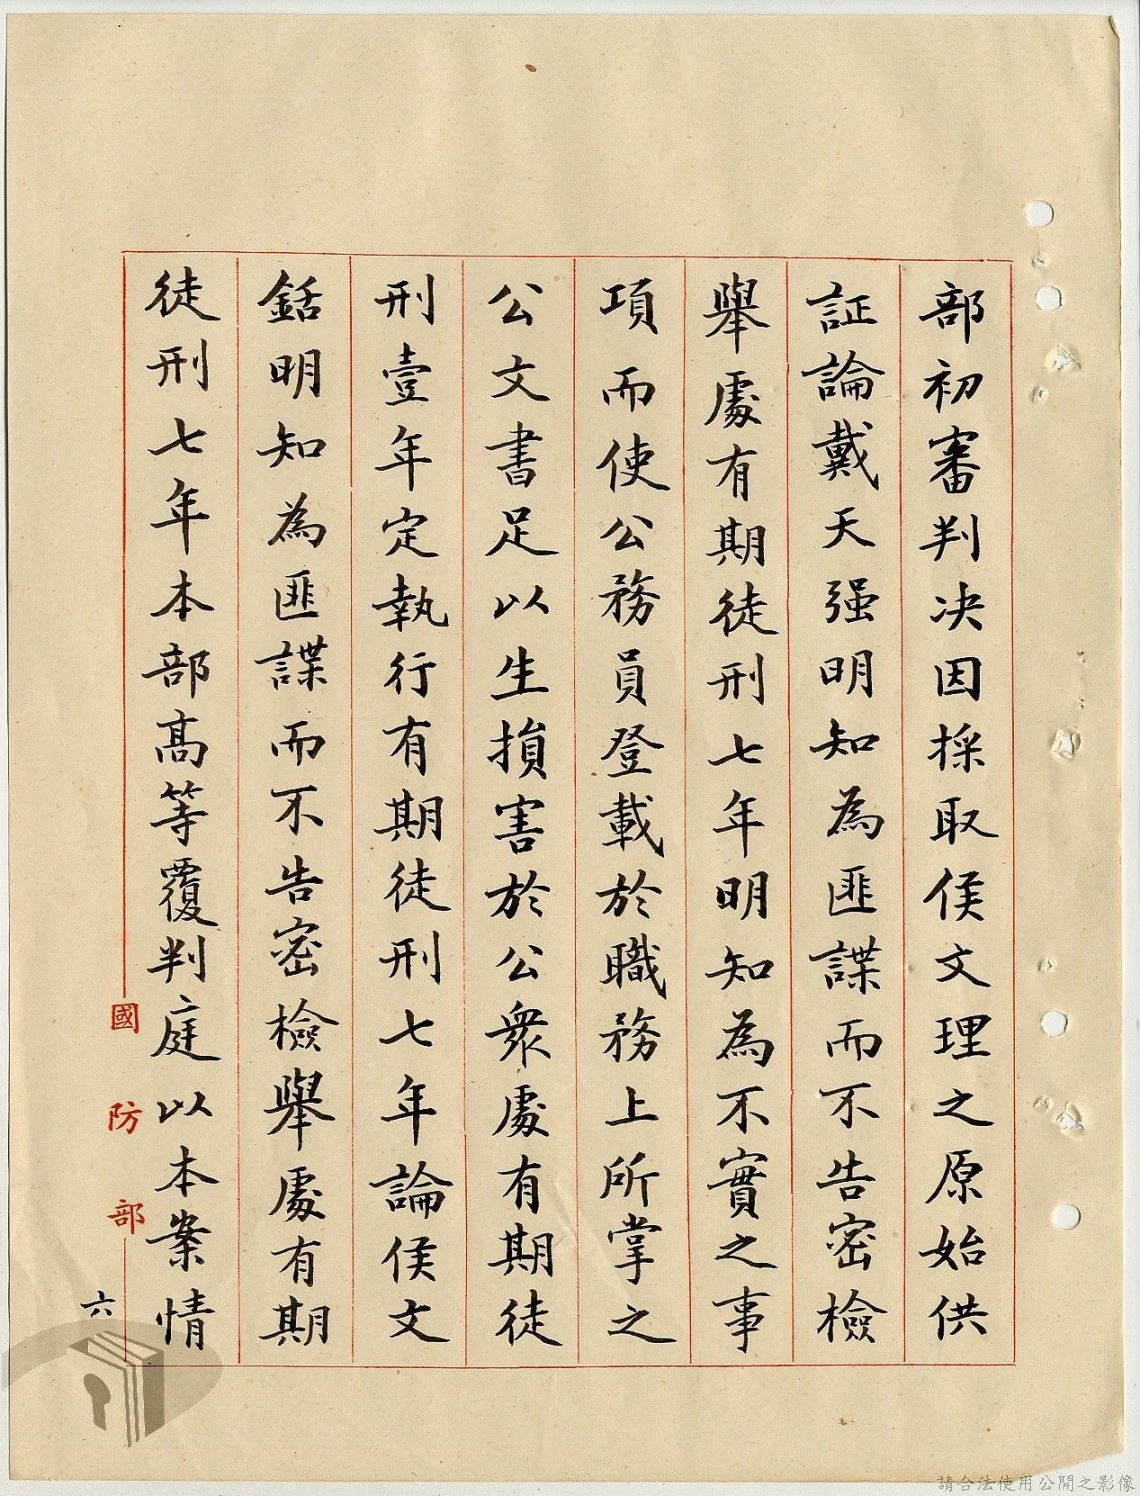 部初審判决因採取侯文理之原始供
証論戴天强明知為匪諜而不告密檢
舉處有期徒刑七年明知為不實之事
項而使公務員登載於職務上所掌之
公文書足以生損害於公衆處有期徒
刑壹年定執行有期徒刑七年論侯文
銛明知為匪諜而不告密檢舉處有期
徒刑七年本部高等覆判庭以本案情
國防部
六
請合法使用公開之影像